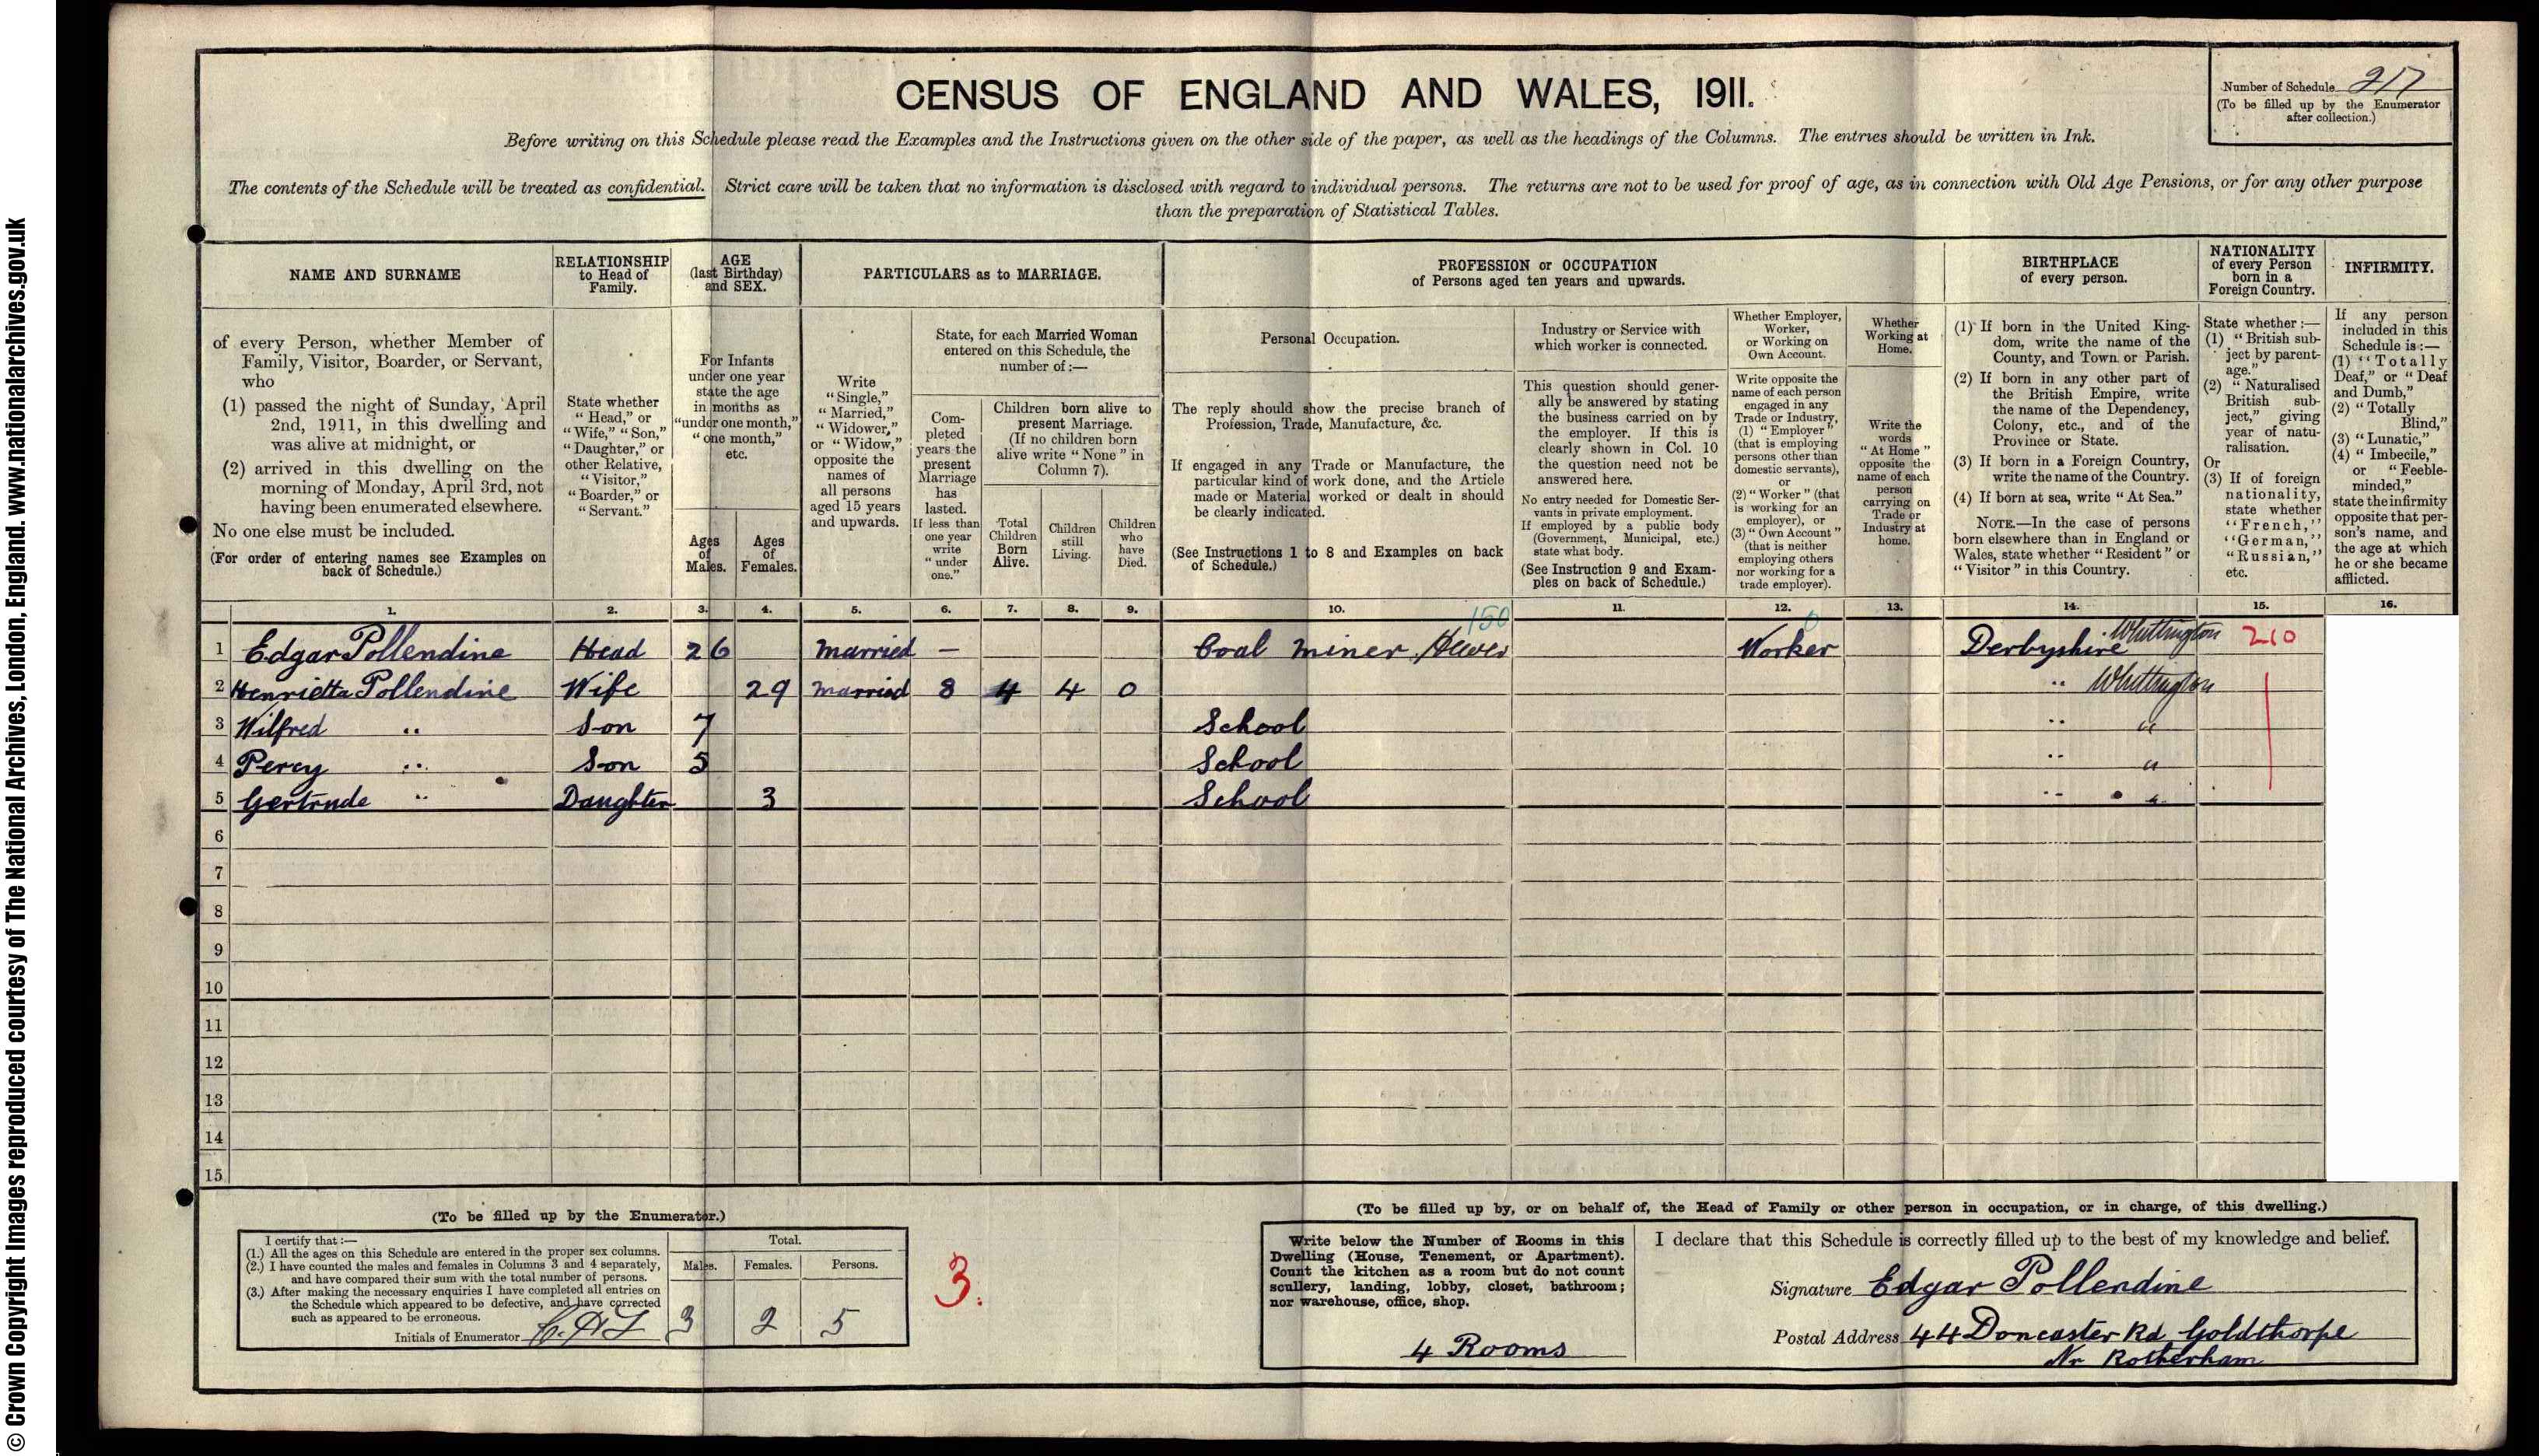 © Crown Copyright Images reproduced courtesy of The National Archives, London, England. www.nationalarchives.gov.uk
CENSUS OF ENGLAND AND WALES, 1911.
Number of Schedule 217
(To be filled up by the Enumerator
after collection.)
Before writing on this Schedule please read the Examples and the Instructions given on the other side of the paper, as well as the headings of the Columns. The entries should be written in Ink.
The contents of the Schedule will be treated as confidential. Strict care will be taken that no information is disclosed with regard to individual persons. The returns are not to be used for proof of age, as in connection with Old Age Pensions, or for any other purpose
than the preparation of Statistical Tables.
NAME AND SURNAME
of every Person, whether Member of
Family, Visitor, Boarder, or Servant,
who
(1) passed the night of Sunday, April
2nd, 1911, in this dwelling and
was alive at midnight, or
(2) arrived in this dwelling on the
morning of Monday, April 3rd, not
having been enumerated elsewhere.
No one else must be included.
(For order of entering names see Examples on
back of Schedule.)
RELATIONSHIP
to Head of
Family.
State whether
"Head," or
"Wife," "Son,"
"Daughter," or
other Relative,
"Visitor,"
"Boarder," or
"Servant."
AGE
(last Birthday)
and SEX.
For Infants
under one year
state the age
in months as
"under one month,"
"one month,"
etc.
Ages
of
Males.
Ages
of
Females.
PARTICULARS as to MARRIAGE.
Write
"Single,"
"Married,"
"Widower,"
or "Widow,"
opposite the
names of
all persons
aged 15 years
and upwards.
State, for each Married Woman
entered on this Schedule, the
number of:—
Com-
pleted
years the
present
Marriage
has
lasted.
If less than
one year
write
"under
one."
Children born alive to
present Marriage.
(If no children born
alive write "None" in
Column 7).
Total
Children
Born
Alive.
Children
still
Living.
Children
who
have
Died.
PROFESSION or OCCUPATION
of Persons aged ten years and upwards.
Personal Occupation.
The reply should show the precise branch of
Profession, Trade, Manufacture, &c.
If engaged in any Trade or Manufacture, the
particular kind of work done, and the Article
made or Material worked or dealt in should
be clearly indicated.
(See Instructions 1 to 8 and Examples on back
of Schedule.)
Industry or Service with
which worker is connected.
This question should gener-
ally be answered by stating
the business carried on by
the employer. If this is
clearly shown in Col. 10
the question need not be
answered here.
No entry needed for Domestic Ser-
vants in private employment.
If employed by a public body
(Government, Municipal, etc.)
state what body.
(See Instruction 9 and Exam-
ples on back of Schedule.)
Whether Employer,
Worker,
or Working on
Own Account.
Write opposite the
name of each person
engaged in any
Trade or Industry,
(1) "Employer"
(that is employing
persons other than
domestic servants),
or
(2) "Worker" (that
is working for an
employer), or
(3) "Own Account"
(that is neither
employing others
nor working for a
trade employer).
Whether
Working at
Home.
Write the
words
"At Home"
opposite the
name of each
person
carrying on
Trade or
Industry at
home.
BIRTHPLACE
of every person.
(1) If born in the United King-
dom, write the name of the
County, and Town or Parish.
(2) If born in any other part of
the British Empire, write
the name of the Dependency,
Colony, etc., and of the
Province or State.
(3) If born in a Foreign Country,
write the name of the Country.
(4) If born at sea, write "At Sea."
NOTE.—In the case of persons
born elsewhere than in England or
Wales, state whether "Resident" or
"Visitor" in this Country.
NATIONALITY
of every Person
born in a
Foreign Country.
State whether:—
(1) "British sub-
ject by parent-
age."
(2) "Naturalised
British sub-
ject," giving
year of natu-
ralisation.
Or
(3) If of foreign
nationality,
state whether
"French,"
"German,"
"Russian,"
etc.
INFIRMITY.
If any person
included in this
Schedule is:—
(1) "Totally
Deaf," or "Deaf
and Dumb,"
(2) "Totally
Blind,"
(3) "Lunatic,"
(4) "Imbecile,"
or "Feeble-
minded,"
state the infirmity
opposite that per-
son's name, and
the age at which
he or she became
afflicted.
1. 2. 3. 4. 5. 6. 7. 8. 9. 10. 11. 12. 13. 14. 15. 16.
150 0
1 Edgar Pollendine Head 26 Married — Coal Miner, Hewer Worker Derbyshire Whittington 210
2 Henrietta Pollendine Wife 29 Married 8 4 4 0 " Whittington
3 Wilfred " Son 7 School " "
4 Percy " Son 5 School " "
5 Gertrude " Daughter 3 School " "
6
7
8
9
10
11
12
13
14
15
(To be filled up by the Enumerator.)
I certify that:—
(1.) All the ages on this Schedule are entered in the proper sex columns.
(2.) I have counted the males and females in Columns 3 and 4 separately,
and have compared their sum with the total number of persons.
(3.) After making the necessary enquiries I have completed all entries on
the Schedule which appeared to be defective, and have corrected
such as appeared to be erroneous.
Initials of Enumerator
Total.
Males. Females. Persons.
3 2 5
3.
(To be filled up by, or on behalf of, the Head of Family or other person in occupation, or in charge, of this dwelling.)
Write below the Number of Rooms in this
Dwelling (House, Tenement, or Apartment).
Count the kitchen as a room but do not count
scullery, landing, lobby, closet, bathroom;
nor warehouse, office, shop.
4 Rooms
I declare that this Schedule is correctly filled up to the best of my knowledge and belief.
Signature Edgar Pollendine
Postal Address 44 Doncaster Rd Goldthorpe
Nr Rotherham